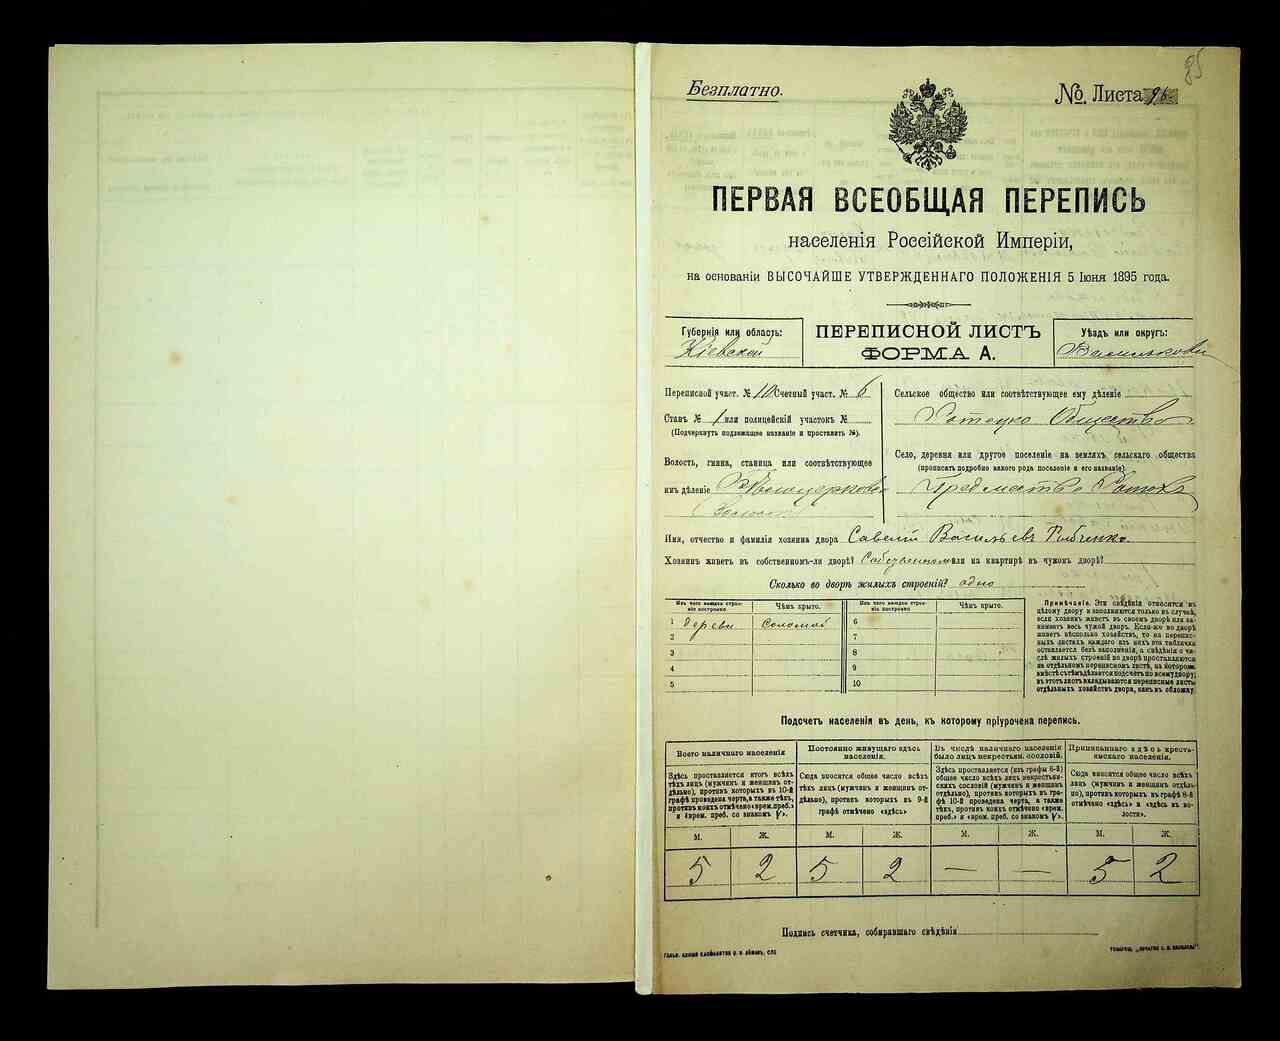 85
Безплатно.
№. Листа 96.
ПЕРВАЯ ВСЕОБЩАЯ ПЕРЕПИСЬ
населенія Россійской Имперіи,
на основаніи ВЫСОЧАЙШЕ УТВЕРЖДЕННАГО ПОЛОЖЕНІЯ 5 Іюня 1895 года.
Губернія или область:
Кіевской
ПЕРЕПИСНОЙ ЛИСТЪ
ФОРМА А.
Уѣздъ или округъ:
Васильковск
Переписной участ. № 10 Счетный участ. № 6
Станъ № 1 или полицейскій участокъ №
(Подчеркнуть подлежащее названіе и проставить №).
Волость, гмина, станица или соотвѣтствующее
имъ дѣленіе
Сельское общество или соотвѣтствующее ему дѣленіе
Общество
Село, деревня или другое поселеніе на земляхъ сельскаго общества
(прописать подробно какого рода поселеніе и его названіе).
Предместье
Имя, отчество и фамилія хозяина двора Савелій Васильевъ
Хозяинъ живетъ въ собственномъ-ли дворѣ? Собственном или на квартирѣ въ чужомъ дворѣ?
Сколько во дворѣ жилыхъ строеній? одно
Изъ чего каждое строеніе построено
Чѣмъ крыто.
Изъ чего каждое строеніе построено
Чѣмъ крыто.
1 дерева Соломой 6
2 7
3 8
4 9
5 10
Примѣчаніе. Эти свѣдѣнія относятся къ
цѣлому двору и заполняются только въ случаѣ,
если хозяинъ живетъ въ своемъ дворѣ или занимаетъ
весь чужой дворъ. Если-же во дворѣ
живетъ нѣсколько хозяйствъ, то на переписныхъ
листахъ каждаго изъ нихъ эта табличка
оставляется безъ заполненія, а свѣдѣнія о числѣ
жилыхъ строеній во дворѣ проставляются
на отдѣльномъ переписномъ листѣ, на которомъ
вмѣстѣ съ тѣмъ дѣлается подсчетъ по всему двору;
въ этотъ листъ вкладываются переписные листы
отдѣльныхъ хозяйствъ двора, какъ въ обложку.
Подсчетъ населенія въ день, къ которому пріурочена перепись.
Всего наличнаго населенія
Постоянно живущаго здѣсь
населенія.
Въ числѣ наличнаго населенія
было лицъ некрестьян. сословій.
Приписаннаго здѣсь крестьянскаго
населенія.
Здѣсь проставляется итогъ всѣхъ
тѣхъ лицъ (мужчинъ и женщинъ отдѣльно),
противъ которыхъ въ 10-й
графѣ проведена черта, а также тѣхъ,
противъ коихъ отмѣчено «врем. преб.»
и «врем. преб. со знакомъ V».
Сюда вносится общее число всѣхъ
тѣхъ лицъ (мужчинъ и женщинъ отдѣльно),
противъ которыхъ въ 9-й
графѣ отмѣчено «здѣсь»
Здѣсь проставляется (изъ графы 6-й)
общее число всѣхъ лицъ некрестьянскихъ
сословій (мужчинъ и женщинъ
отдѣльно), противъ которыхъ въ графѣ
10-й проведена черта, а также
тѣхъ, противъ коихъ отмѣчено «врем.
преб.» и «врем. преб. со знакомъ V».
Сюда вносится общее число всѣхъ
лицъ (мужчинъ и женщинъ отдѣльно),
противъ которыхъ въ графѣ 8-й
отмѣчено «здѣсь» и «здѣсь въ волости».
М. Ж. М. Ж. М. Ж. М. Ж.
5 2 5 2 — — 5 2
Подпись счетчика, собиравшаго свѣдѣнія